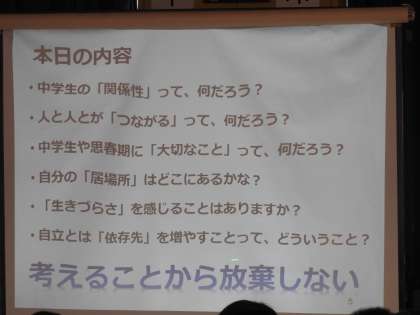 本日の内容
・中学生の「関係性」って、何だろう？
・人と人とが「つながる」って、何だろう？
・中学生や思春期に「大切なこと」って、何だろう？
・自分の「居場所」はどこにあるかな？
・「生きづらさ」を感じることはありますか？
・自立とは「依存先」を増やすことって、どういうこと？
考えることから放棄しない